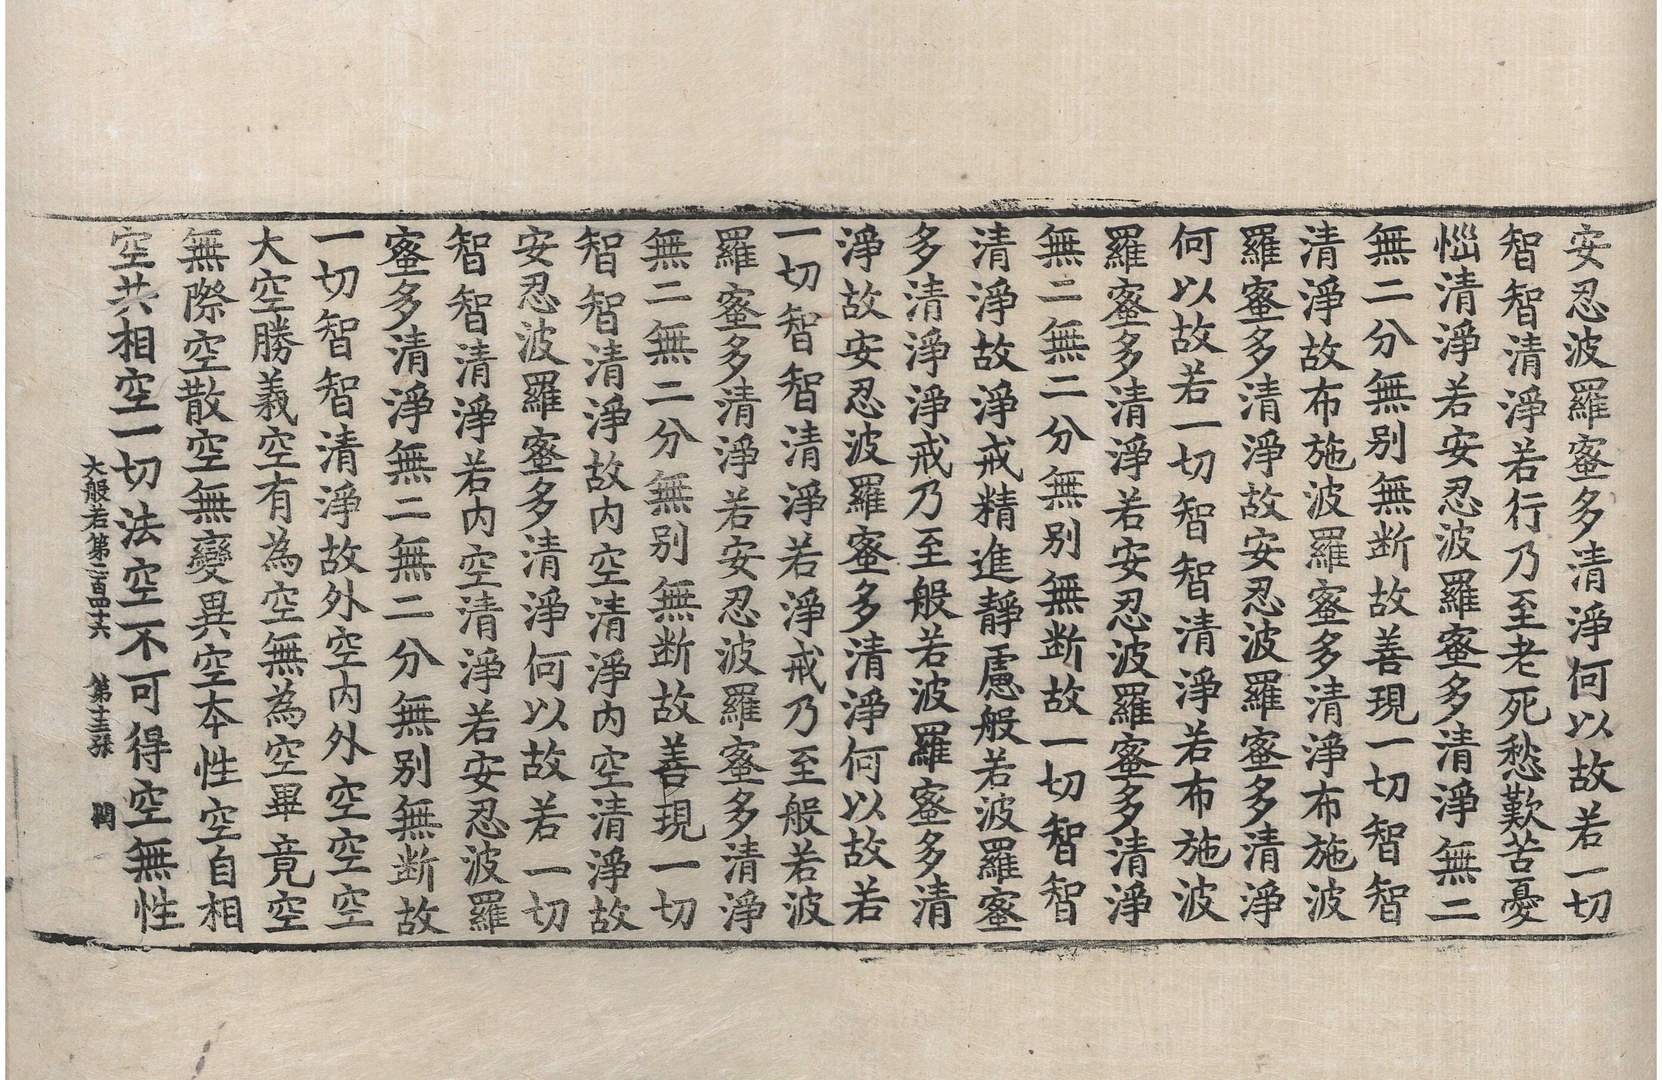 安忍波羅蜜多清淨何以故若一切
智智清淨若行乃至老死愁歎苦憂
惱清淨若安忍波羅蜜多清淨無二
無二分無别無断故善現一切智智
清淨故布施波羅蜜多清淨布施波
羅蜜多清淨故安忍波羅蜜多清淨
何以故若一切智智清淨若布施波
羅蜜多清淨若安忍波羅蜜多清淨
無二無二分無别無断故一切智智
清淨故淨戒精進靜慮般若波羅蜜
多清淨淨戒乃至般若波羅蜜多清
淨故安忍波羅蜜多清淨何以故若
一切智智清淨若淨戒乃至般若波
羅蜜多清淨若安忍波羅蜜多清淨
無二無二分無别無断故善現一切
智智清淨故内空清淨内空清淨故
安忍波羅蜜多清淨何以故若一切
智智清淨若内空清淨若安忍波羅
蜜多清淨無二無二分無别無断故
一切智智清淨故外空内外空空空
大空勝義空有為空無為空畢竟空
無際空散空無變異空本性空自相
空共相空一切法空不可得空無性
大般若第二百四十六 第十三張 閏